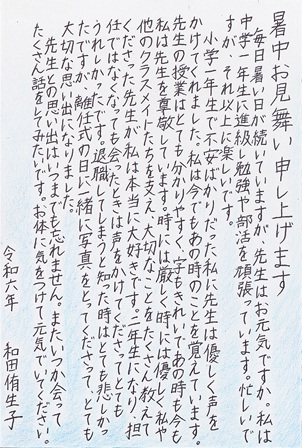 暑中お見舞い申し上げます
毎日暑い日が続いていますが、先生はお元気ですか。私は
中学一年生に進級し勉強や部活を頑張っています。忙しいで
すが、それ以上に楽しいです。
小学一年生で不安ばかりだった私に先生は優しく声を
かけてくれました。私は今でもあの時のことを覚えています。
先生の授業はとても分かりやすく、字もきれいであの時も今も
私は先生を尊敬しています。時には厳しく時には優しく私や
他のクラスメイトたちを支え、大切なことをたくさん教えて
くださった先生が私は本当に大好きです。二年生になり、担
任ではなくなっても会ったときは声をかけてくださってとても
うれしかったです。退職してしまうと知った時はとても悲しかっ
たですが、離任式の日に一緒に写真をとってくださって、とても
大切な思い出になりました。
先生との思い出はいつまでも忘れません。またいつか会って
たくさん話をしてみたいです。お体に気をつけて元気でいてください。
令和六年 和田侑生子